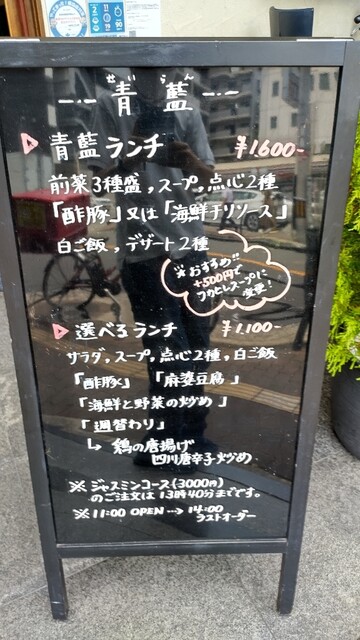 せい らん
青藍
青藍ランチ ¥1,600-
前菜3種盛,スープ,点心2種
「酢豚」又は「海鮮チリソース」
白ご飯,デザート2種
※おすすめ!!
+500円で
フカヒレスープに
変更!
選べるランチ ¥1,100-
サラダ,スープ,点心2種,白ご飯
「酢豚」 「麻婆豆腐」
「海鮮と野菜の炒め」
「週替わり」
↳ 鶏の唐揚げ
四川唐辛子炒め
※ジャスミンコース(3000円)
のご注文は13時40分までです。
※11:00 OPEN --→ 14:00
ラストオーダー